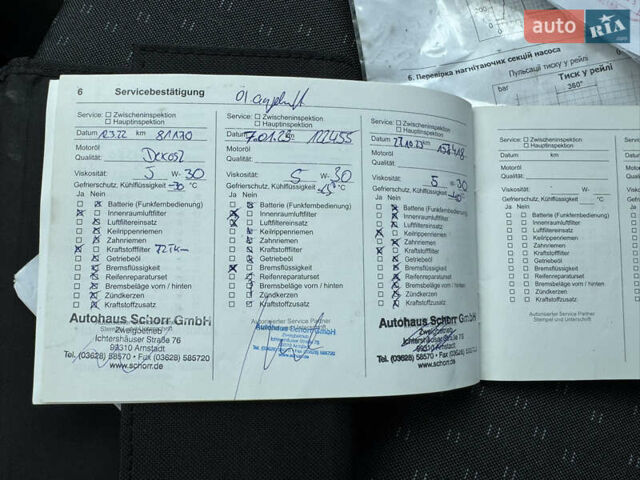 auto RIA.com
6. Перевірка нагнітаючих секцій насоса
Пульсації тиску у рейлі
bar
Тиск у рейлі
360°
6 Servicebestätigung
Service: Zwischeninspektion
Hauptinspektion
Datum 12.3.22 km 81170
Motoröl
Qualität:
Viskosität: 5 W- 30
Gefrierschutz, Kühlflüssigkeit -30 °C
Ja Nein
Batterie (Funkfernbedienung)
Innenraumluftfilter
Luftfiltereinsatz
Keilrippenriemen
Zahnriemen
Kraftstofffilter 72Tkm
Getriebeöl
Bremsflüssigkeit
Reifenreparaturset
Bremsbeläge vorn / hinten
Zündkerzen
Kraftstoffzusatz
Autohaus Schorr GmbH
Zweigbetrieb
Ichtershäuser Straße 76
99310 Arnstadt
Tel. (03628) 58570 • Fax (03628) 585720
www.schorr.de
Service: Zwischeninspektion
Hauptinspektion
Datum 7.01.23 km 122455
Motoröl
Qualität:
Viskosität: 5 W- 30
Gefrierschutz, Kühlflüssigkeit °C
Ja Nein
Batterie (Funkfernbedienung)
Innenraumluftfilter
Luftfiltereinsatz
Keilrippenriemen
Zahnriemen
Kraftstofffilter
Getriebeöl
Bremsflüssigkeit
Reifenreparaturset
Bremsbeläge vorn / hinten
Zündkerzen
Kraftstoffzusatz
Autorisierter Service Partner
Autohaus Schorr GmbH
99310 Arnstadt
Service: Zwischeninspektion
Hauptinspektion
Datum km
Motoröl
Qualität:
Viskosität: 5 W- 30
Gefrierschutz, Kühlflüssigkeit °C
Ja Nein
Batterie (Funkfernbedienung)
Innenraumluftfilter
Luftfiltereinsatz
Keilrippenriemen
Zahnriemen
Kraftstofffilter
Getriebeöl
Bremsflüssigkeit
Reifenreparaturset
Bremsbeläge vorn / hinten
Zündkerzen
Kraftstoffzusatz
Autohaus Schorr GmbH
Zweigbetrieb
Ichtershäuser Straße 76
99310 Arnstadt
Tel. (03628) 58570 • Fax (03628) 585720
www.schorr.de
Service: Zwischeninspektion
Hauptinspektion
Datum km
Motoröl
Qualität:
Viskosität: W-
Gefrierschutz, Kühlflüssigkeit
Ja Nein
Batterie (Funkfernbedienung)
Innenraumluftfilter
Luftfiltereinsatz
Keilrippenriemen
Zahnriemen
Kraftstofffilter
Getriebeöl
Bremsflüssigkeit
Reifenreparaturset
Bremsbeläge vorn / hinten
Zündkerzen
Kraftstoffzusatz
Autorisierter Service Partner
Stempel und Unterschrift